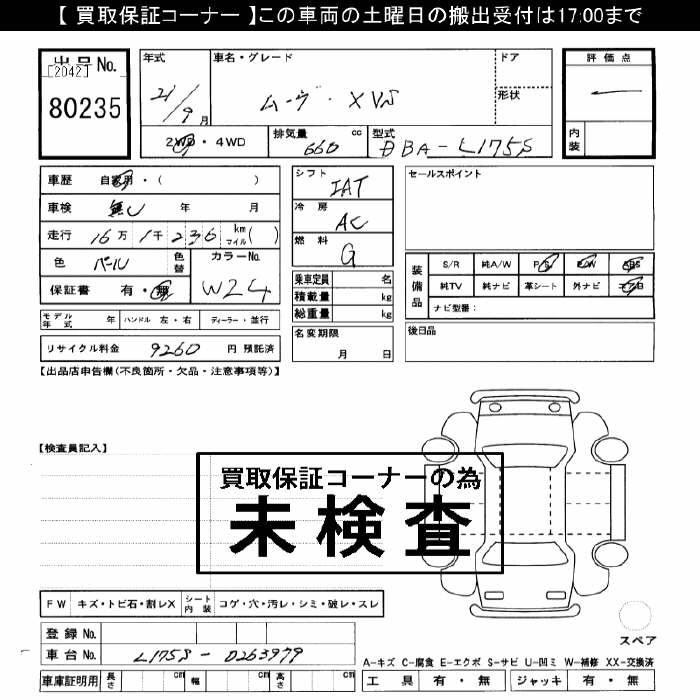 【 買取保証コーナー 】この車両の土曜日の搬出受付は17:00まで
出品No.
[2042]
80235
年式
21/9月
車名・グレード
ムーヴ・XVS
ドア
形状
2WD・4WD
排気量
660 cc
型式
DBA-L175S
評価点
内装
車歴 自家用・( )
車検 無し 年 月
走行 16万1千236 km マイル( )
色 パール 色替
カラーNo.
W24
保証書 有・無
シフト
IAT
冷房
AC
燃料
G
乗車定員 名
積載量 kg
総重量 kg
セールスポイント
装備品
S/R 純A/W P/S P/W ABS
純TV 純ナビ 革シート 外ナビ エアB
ナビ型番:
モデル年式 年 ハンドル 左・右 ディーラー・並行
名変期限
月 日
後日品
リサイクル料金 9260 円 預託済
【出品店申告欄(不良箇所・欠品・注意事項等)】
【検査員記入】
買取保証コーナーの為
未検査
FW キズ・トビ石・割レX シート内装 コゲ・穴・汚レ・シミ・破レ・スレ
登録No.
車台No. L175S-0263979
車庫証明用 長さ cm 幅 cm 高さ cm
スペア
A-キズ C-腐食 E-エクボ S-サビ U-凹ミ W-補修 XX-交換済
工具 有・無 ジャッキ 有・無